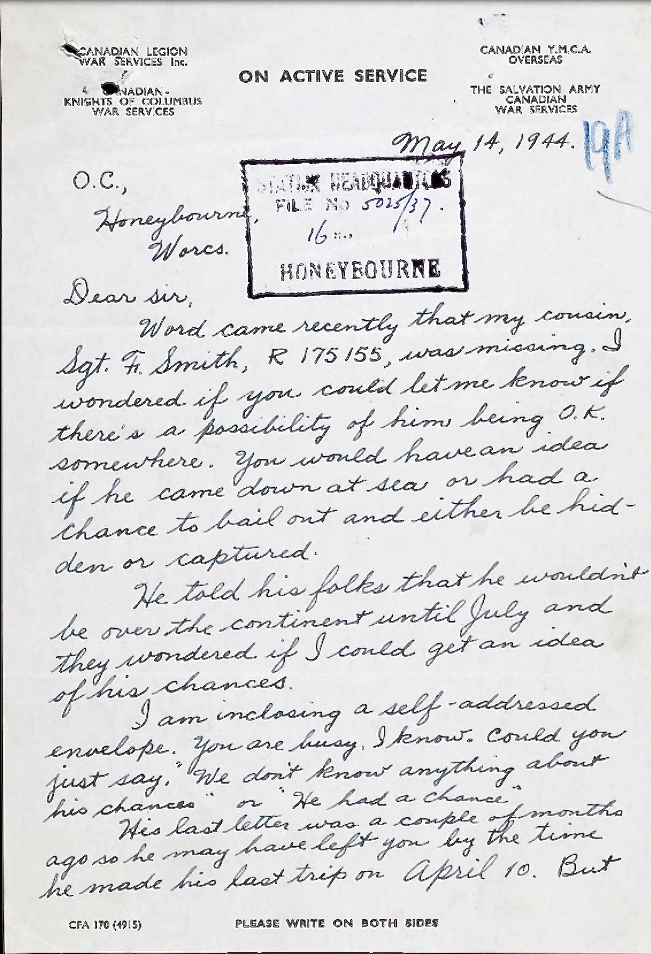 CANADIAN LEGION
WAR SERVICES Inc.
NADIAN-
KNIGHTS OF COLUMBUS
WAR SERVICES
ON ACTIVE SERVICE
CANADIAN Y.M.C.A.
OVERSEAS
THE SALVATION ARMY
CANADIAN
WAR SERVICES
May 14, 1944.
19A
O.C.,
Honeybourne,
Worcs.
STATION HEADQUARTERS
FILE No 5025/37.
16
HONEYBOURNE
Dear sir,
Word came recently that my cousin,
Sgt. F. Smith, R 175155, was missing. I
wondered if you could let me know if
there's a possibility of him being O.K.
somewhere. You would have an idea
if he came down at sea or had a
chance to bail out and either be hid-
den or captured.
He told his folks that he wouldn't
be over the continent until July and
they wondered if I could get an idea
of his chances.
I am inclosing a self-addressed
envelope. You are busy, I know. Could you
just say, "We don't know anything about
his chances" or "He had a chance"
His last letter was a couple of months
ago so he may have left you by the time
he made his last trip on April 10. But
CFA 170 (4915)
PLEASE WRITE ON BOTH SIDES